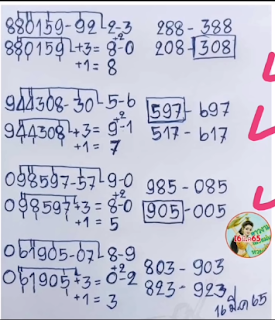 880159-92 2-3 288-388
880159 +3= 8-0 208-308
+2
+1= 8
944308-30 5-6 597-697
944308 +3= 9-1 517-617
+2
+1= 7
098597-57 9-0 985-085
098597 +3= 8-0 905-005
+2
+1= 5
061905-07 8-9 803-903
061905 +3= 0-2 823-923
+2
+1= 3
16 มี.ค 65